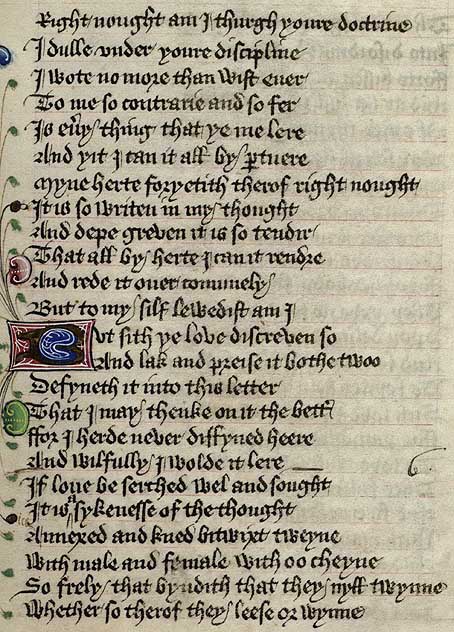 Right nought am I thurgh youre doctrine
I dulle vnder youre discipline
I wote no more than wist euer
To me so contrarie and so fer
Is eu'y thing that ye me lere
And yit I can it all by ꝑtuere
Myne herte foryetith therof right nought
It is so writen in my thought
And depe greven it is so tendir
That all by herte I can it rendre
And rede it ouer comunely
But to my silf lewedist am I
But sith ye love discreven so
And lak and preise it bothe twoo
Defyneth it into this letter
That I may thenke on it the bett'
ffor I herde never diffyned heere
And wilfully I wolde it lere
If loue be serched wel and sought
It is a sykenesse of the thought
Annexed and kned bitwixt tweyne
With male and female with oo cheyne
So frely that byndith that they nyll twynne
Whether so therof they leese or wynne
6